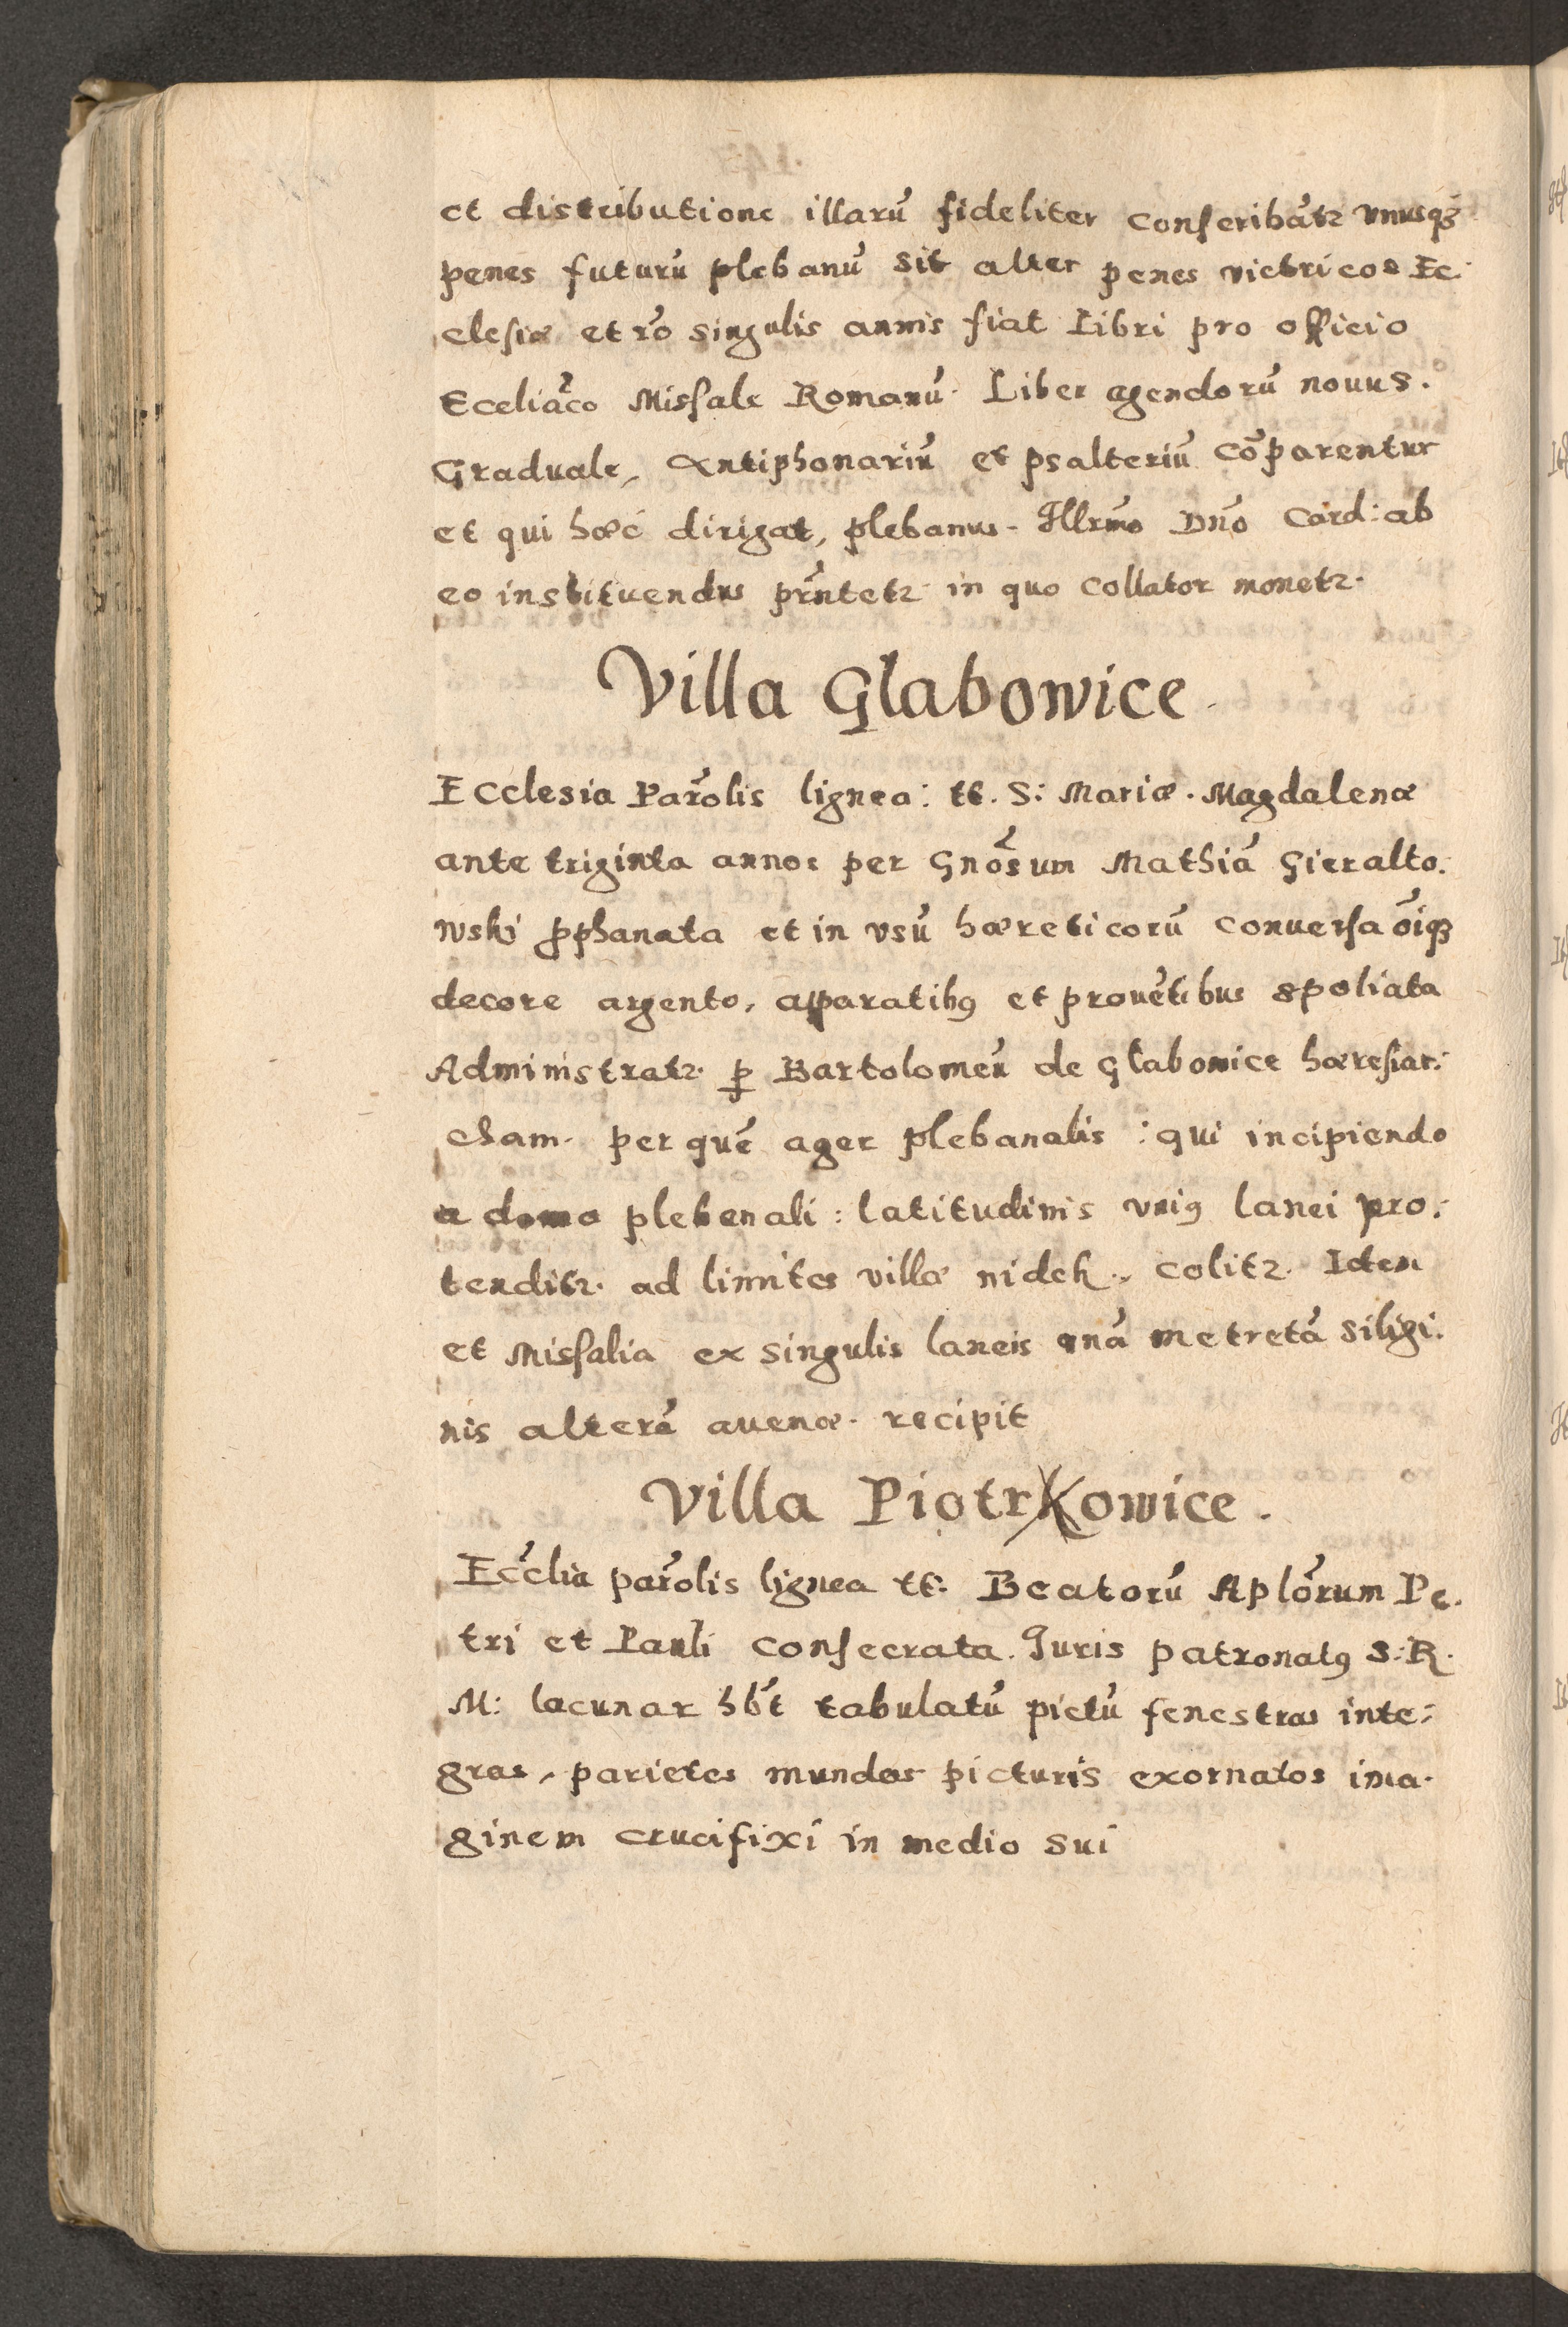 et distributione illarū fideliter conscribātr vnusqȝ
penes futurū plebanū sit alter penes victricos Ec:
clesiæ et ro͂ singulis annis fiat Libri pro officio
Eccliaco͂ Missale Romanū. Liber agendorū nouus.
Graduale, Antiphonariū et psalteriū cōparentur
et qui hæc dirigat, plebanus. Illrmo͂ Dno͂ Card: ab
eo instituendus prn͂tetr in quo collator monetr.
Villa Glabowice.
Ecclesia Parol͂is lignea: tt. S: Mariæ. Magdalenæ
ante triginta annos per Gno͂sum Mathiā Gieralto:
wski ꝓphanata et in vsū hæreticorū conuersa oīqȝ
decore argento, apparatibꝰ et prouētibus spoliata
Administratr. ꝑ Bartolomeū de Glabowice hæresiar:
cham. per quē ager plebanalis: qui incipiendo
a domo plebanali: latitudinis vniꝰ lanei pro:
tenditr. ad limites villæ nidek., colitr. Idem
et Missalia ex singulis laneis vnā metretā siligi:
nis alterā auenæ. recipit
Villa Piotrkowice.
Ecc͂lia parol͂is lignea tt. Beatorū Aplo͂rum Pe:
tri et Pauli consecrata. Juris patronatꝰ S: R.
M: lacunar hb͂t tabulatū pictū fenestras inte:
gras, parietes mundos picturis exornatos ima:
ginem crucifixi in medio sui